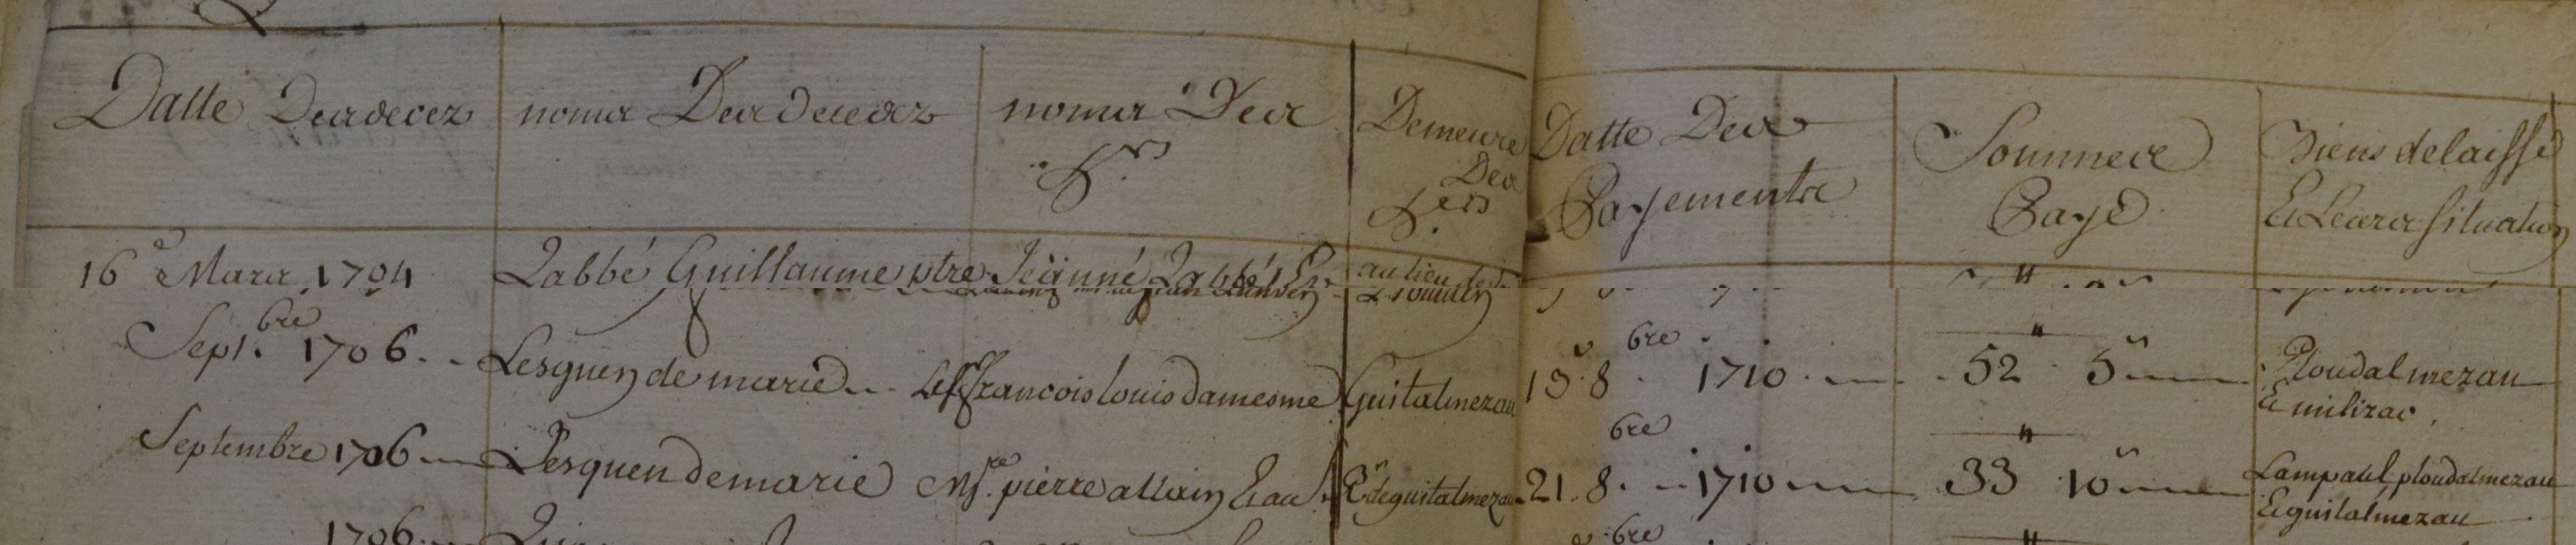 Datte Des decez noms Des Decedez noms Des Demeure Datte Des Somme Biens delaissé
hrs Des hers Payements Payé Et Leurs Situation
16e Mars 1704 Labbé Guillaume ptre Jeanne Labbé au lieu de
Septbre 1706 Lesquen de marie François louis damesme Guitalmezau 13 8bre 1710 52" 5s Ploudalmezau
Et milizac
Septembre 1706 Lesquen de marie Mre pierre allain Et au Psse de guitalmezau 21 8bre 1710 33" 10s Lampaul ploudalmezau
Et guitalmezau
1706